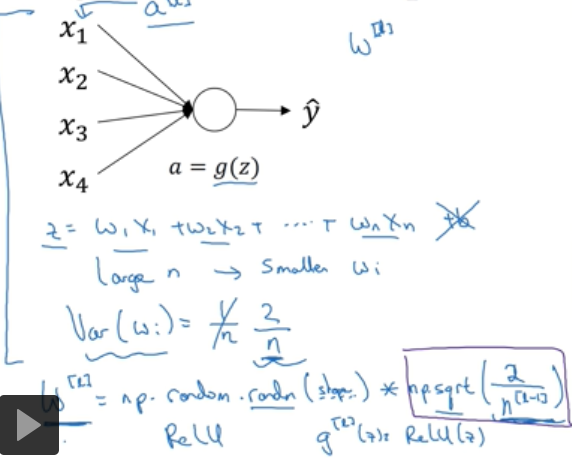 a^[L]
x₁
w^[l]
x₂
ŷ
x₃
x₄
a = g(z)
z = w₁x₁ + w₂x₂ + ···· + wₙxₙ +b
Large n → Smaller wᵢ
Var(wᵢ) = 1/n 2/n
W^[l] = np.random.randn(shape) * np.sqrt(2/n^[l-1])
ReLU g^[l](z) = ReLU(z)